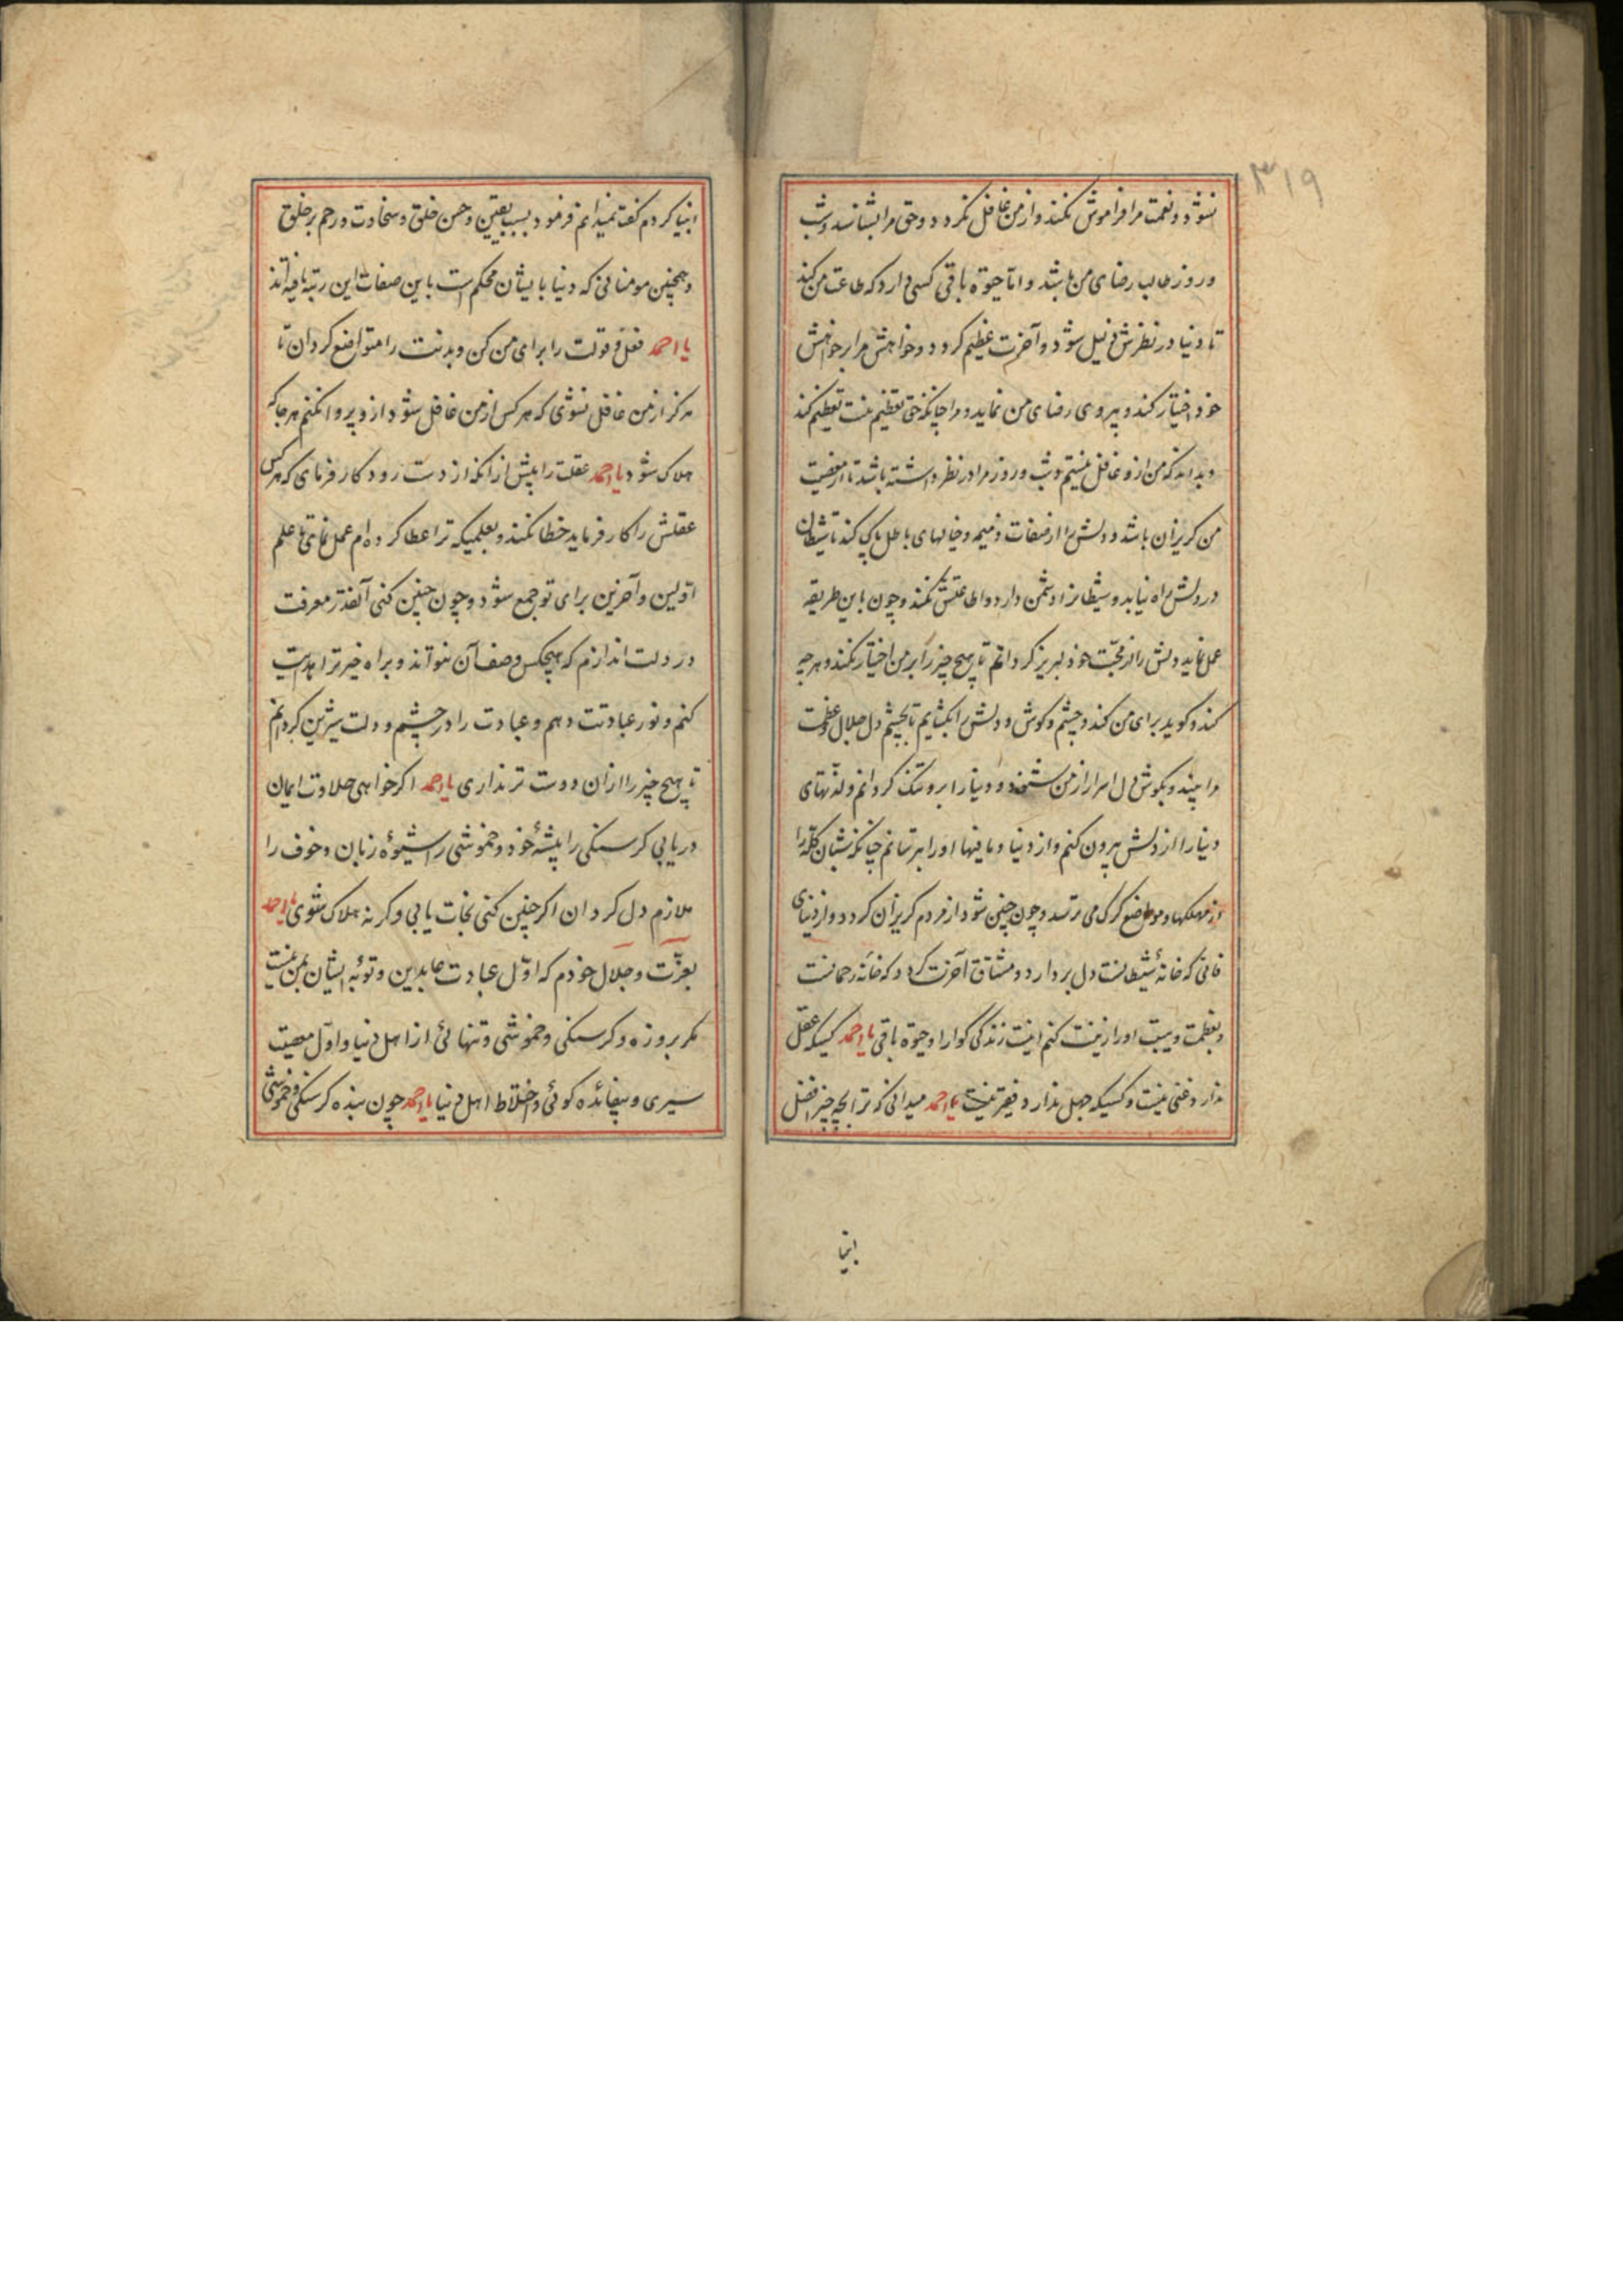 ۳۱۹
نشود و نعمت مرا فراموش نکند و از من غافل نکردد و حق مرا بشناسد و شب
و روز طالب رضای من باشد و اما حیوة باقی کسی دارد که طاعت من کند
تا دنیا در نظرش ذلیل شود و آخرت عظیم کردد و خواهش مرا بر خواهش
خود اختیار کند و پیروی رضای من نماید و مرا چنانکه حق تعظیم منست تعظیم کند
و بداند که من ازو غافل نیستم و شب و روز مرا در نظر داشته باشد تا از معصیت
من کریزان باشد و دلش را از صفات ذمیمه و خیالهای باطل پاک کند تا شیطان
در دلش راه نیابد و شیطانرا دشمن دارد و اطاعتش نکند و چون باین طریقه
عمل نماید دلش را از محبّت خود لبریز کردانم تا هیچ چیز را بر من اختیار نکند و هر چه
کند و کوید برای من کند و چشم و کوش و دلش را بکشایم تا بچشم دل جلال و عظمت
مرا بیند و بکوش دل اسرار از من شنود و دنیا را برو تنک کردانم و لذّتهای
دنیا را از دلش بیرون کنم و از دنیا و مافیها او را بترسانم چنانکه شبان کلّه را
از مهلکها و مواضع کرک می ترسد و چون چنین شود از مردم کریزان کردد و از دنیای
فانی که خانهٔ شیطانست دل بردارد و مشتاق آخرت کردد که خانهٔ رحمانست
و بعظمت و هیبت او را زینت کنم اینست زندکی کوارا و حیوة باقی یا احمد کسیکه عقل
ندارد غنی نیست و کسیکه جهل ندارد فقیر نیست یا احمد میدانی که ترا بچه چیز افضل
انبیا
انبیا کردم کفت نمیدانم فرمود بسبب یقین و حسن خلق و سخاوت و رحم بر خلق
و همچنین مومنانی که دنیا بایشان محکم است باین صفات این رتبه یافته‌اند
یا احمد فعل و قولت را برای من کن و بدنت را متواضع کردان تا
هرکز از من غافل نشوی که هر کس از من غافل شود ازو پروا نکنم هر جا که
هلاک شود یا احمد عقلت را پیش از آنکه از دست رود کار فرمای که هر کس
عقلش را کار فرماید خطا نکند و بعلمیکه ترا عطا کرده ام عمل نمای تا علم
اولین و آخرین برای تو جمع شود و چون چنین کنی آنقدر معرفت
در دلت اندازم که هیچکس وصف آن نتواند و براه خیر ترا هدایت
کنم و نور عبادتت دهم و عبادت را در چشم و دلت شیرین کردانم
تا هیچ چیز را از ان دوست تر نداری یا احمد اکر خواهی حلاوت ایمان
دریابی کرسنکی را پیشهٔ خود و خموشی را شیوهٔ زبان و خوف را
ملازم دل کردان اکر چنین کنی نجات یابی و کرنه هلاک شوی یا احمد
بعزّت و جلال خودم که اوّل عبادت عابدین و توبهٔ ایشان بمن نیست
مکر بروزه و کرسنکی و خموشی و تنهائی از اهل دنیا و اوّل معصیت
سیری و بیفائده کوئی و اختلاط اهل دنیا یا احمد چون بنده کرسنکی و خموشی